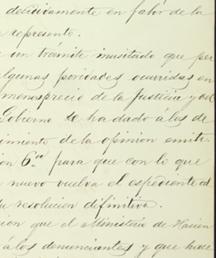 decididamente en favor de la
represente.
un trámite inusitado que per
algunas poridades ocurridas en
menosprecio de la Justicia y del
Gobierno le ha dado a los de
de la opinion emiti
ion 6.ª para que con lo que
nuevo vuelva el espediente al
su resolucion definitiva.
ion que el Ministerio de Hacien
a los denunciantes y que hace